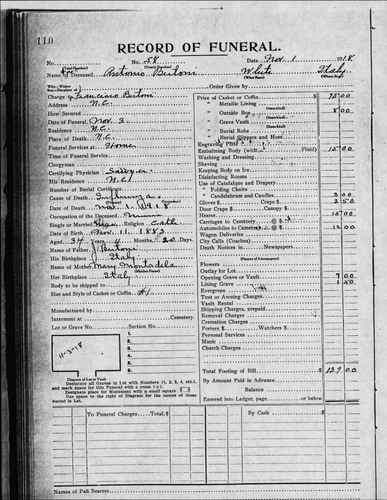 110
RECORD OF FUNERAL.
No. 58 Date Nov. 1 1918
Name of Deceased Antonio Bertoni White Italy
Charge to Francisco Bertoni Order Given by
Address N.C. Price of Casket or Coffin $ 75.00
How Secured " Metallic Lining
Date of Funeral Nov. 3. " Outside Box 8.00
Residence N.C. " Grave Vault
Place of Death N.C. " Burial Robe
Funeral Services at Home " Burial Slippers and Hose
Time of Funeral Service Engraving Plate
Clergyman Embalming Body (with Fluid) 15.00
Certifying Physician Washing and Dressing
His Residence N.C. Shaving
Number of Burial Certificate Keeping Body on Ice
Cause of Death Disinfecting Rooms
Date of Death Nov. 1 1918 Use of Catafalque and Drapery
Occupation of the Deceased Miner " Folding Chairs
Single or Married Religion Cath Candelabrum and Candles 2.00
Date of Birth Nov. 11. 1883 Gloves $ Crape $ 2.50
Aged 34 Years, Months, 20 Days Door Crape $ Canopy $
Name of Father Bertoni Hearse 15.00
His Birthplace Italy Carriages to Cemetery @ $
Name of Mother Mary Automobiles to Cemetery @
Her Birthplace Italy Wagon Deliveries
Body to be shipped to City Calls (Coaches)
Size and Style of Casket or Coffin #1 Death Notices in Newspapers
Flowers
Outlay for Lot
Manufactured by Opening Grave or Vault 9.00
Interment at Cemetery. Lining Grave 1.50
Lot or Grave No. Section No. Evergreen
Tent or Awning Charges
1. Vault Rental
2. Shipping Charges, prepaid
3. Removal Charges
11-3-18 4. Cremation Charges
5. Porters $ Watchers $
6. Personal Services
Music
Church Charges
Diagram of Lot or Vault
Designate all Graves in Lot with Numbers (1, 2, 3, 4, etc.), Total Footing of Bill $ 139.00
and mark space for this Funeral with a cross (+). By Amount Paid in Advance
Designate place for Monument with a small square (□) Balance
Use space to the right of Diagram for the names of those
buried in Lot. Entered into Ledger, page or below $
To Funeral Charges Total $ By Cash $
Names of Pall Bearers